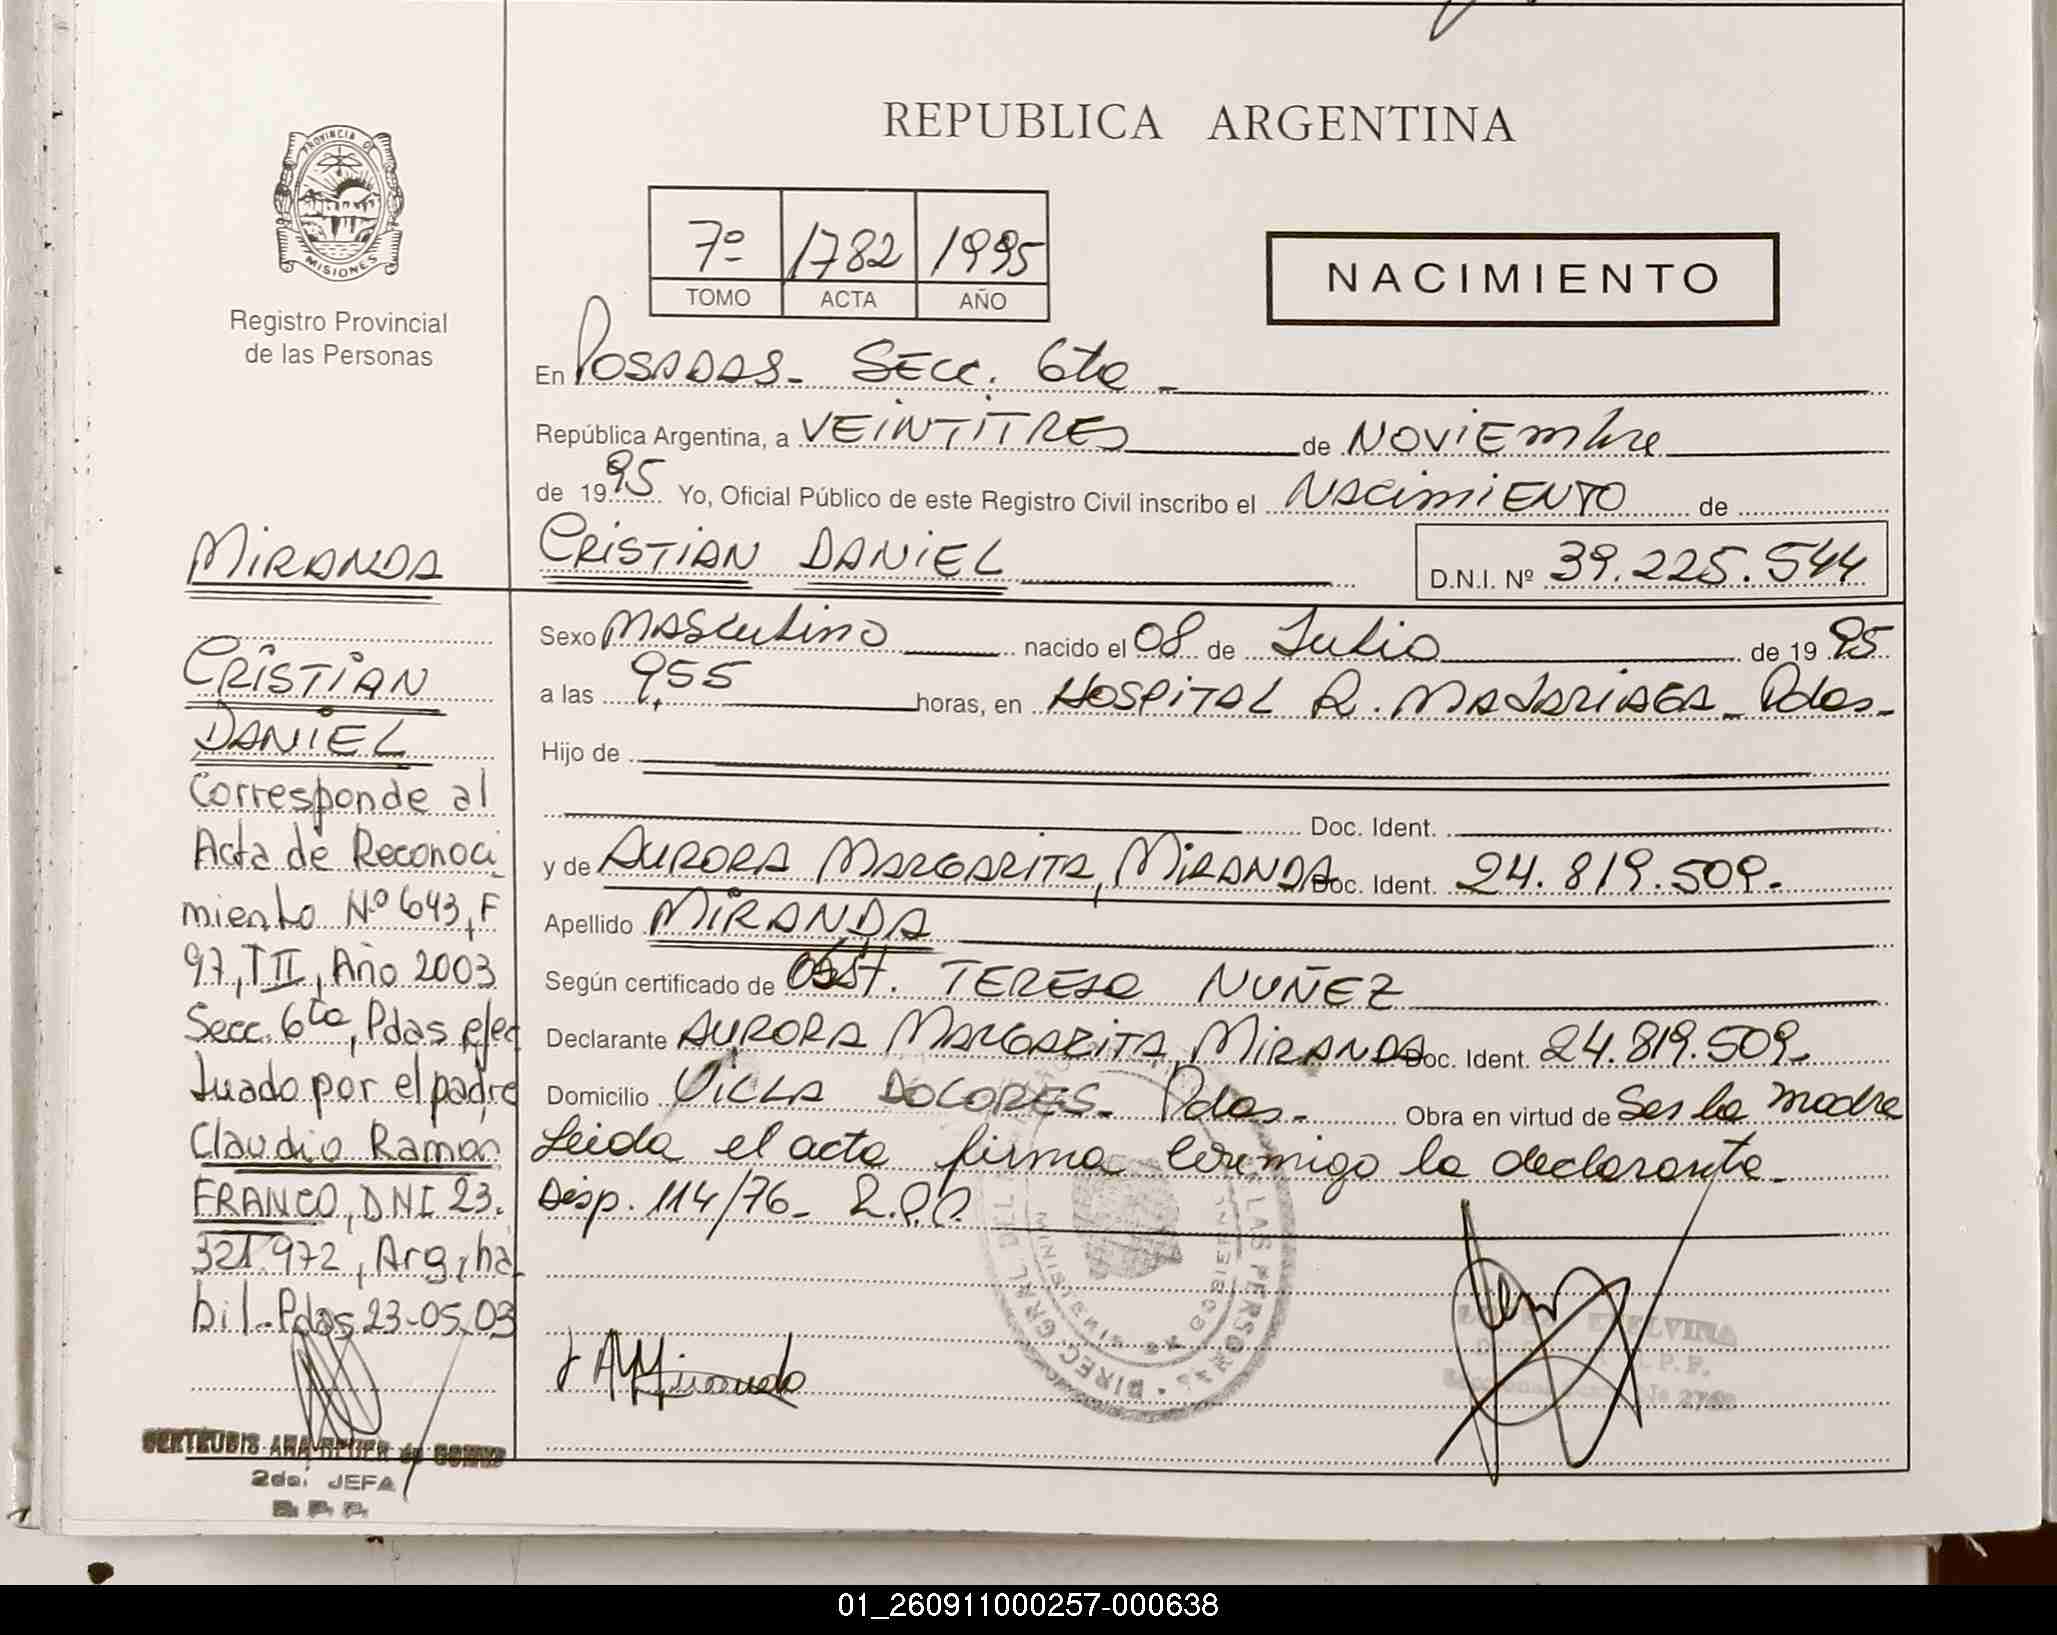 REPUBLICA ARGENTINA
PROVINCIA DE
MISIONES
Registro Provincial
de las Personas
7º 1782 1995
TOMO ACTA AÑO
NACIMIENTO
En POSADAS - SECC. 6ta -
República Argentina, a VEINTITRES de NOVIEmbre
de 1995 Yo, Oficial Público de este Registro Civil inscribo el NACIMIENTO de
CRISTIAN DANIEL D.N.I. Nº 39.225.544
Sexo MASCULINO nacido el 08 de Julio de 1995
a las 9,55 horas, en HOSPITAL R. MADARIAGA - Pdas -
Hijo de
Doc. Ident.
y de AURORA MARGARITA, MIRANDA Doc. Ident. 24.819.509.
Apellido MIRANDA
Según certificado de Obst. TERESA NUÑEZ
Declarante AURORA MARGARITA, MIRANDA Doc. Ident. 24.819.509.
Domicilio VILLA DOLORES - Pdas - Obra en virtud de Ser la madre
Leida el acta firma conmigo la declarante -
Disp. 114/76 - R.P.P.
MIRANDA
CRISTIAN
DANIEL
Corresponde al
Acta de Reconoci
miento Nº 643, F
97, T II, Año 2003
Secc. 6ta, Pdas efec
tuado por el padre
Claudio Ramon
FRANCO, DNI 23.
321.972, Arg, há
bil. Pdas 23-05.03
2da. JEFA
R. P. P.
AMMiranda
DIREC. GRAL. DEL LAS PERSONAS
01_260911000257-000638